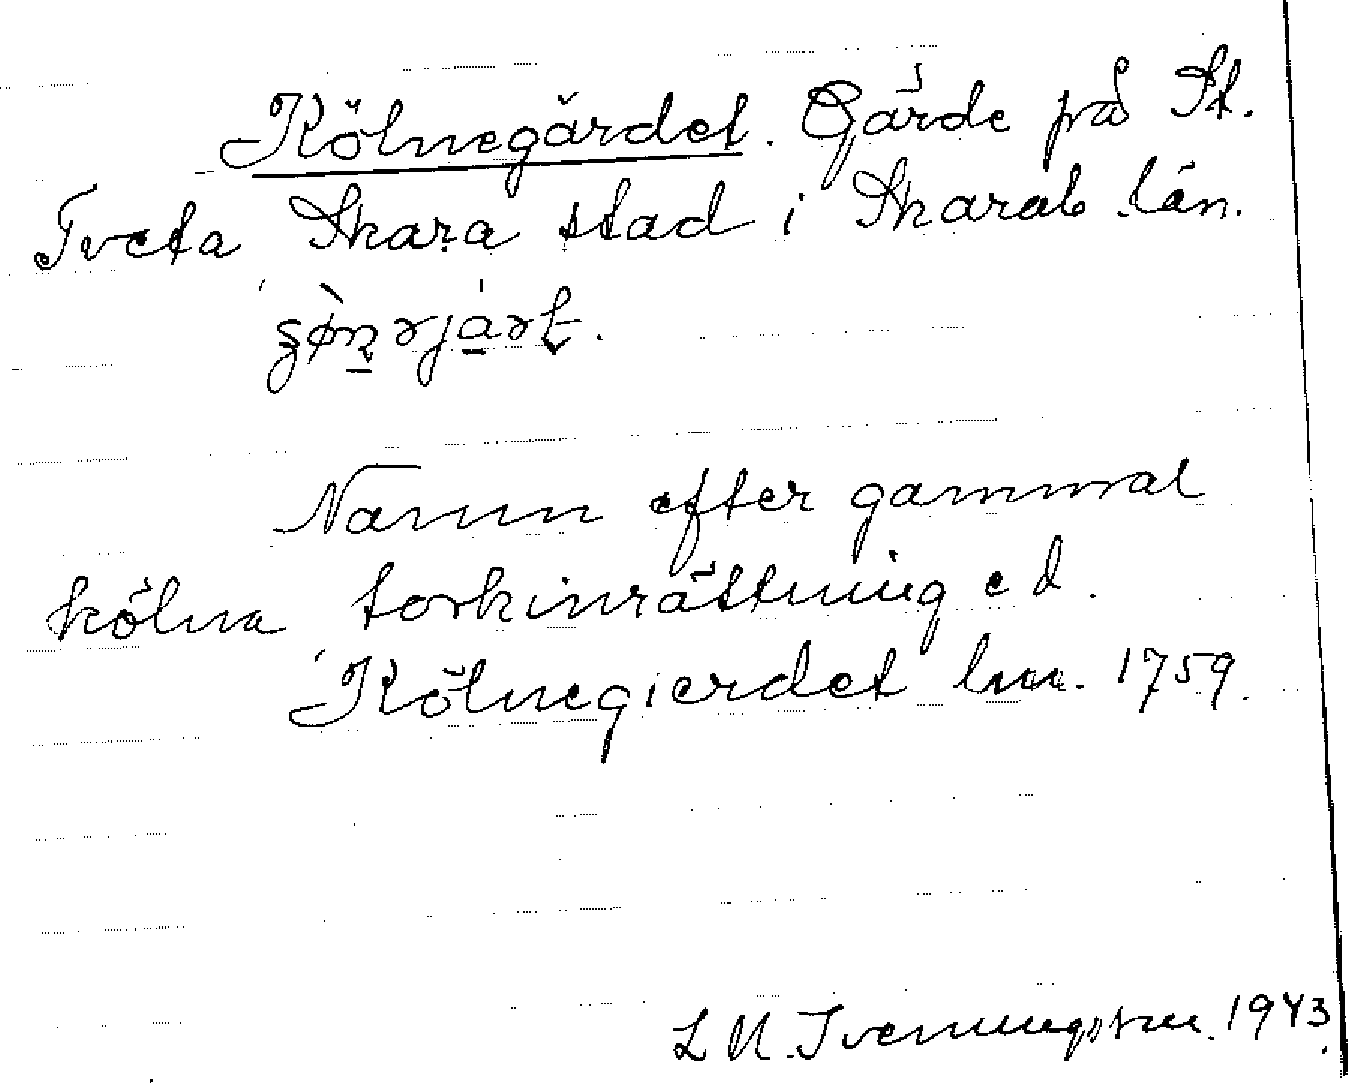 Kölnegärdet. Gärde på St.
Tveta Skara stad i Skarab. län.
Namn efter gammal
kölna torkinrättning e d.
Kölnegierdet lm. 1759.
L M. Svenungsson. 1943.